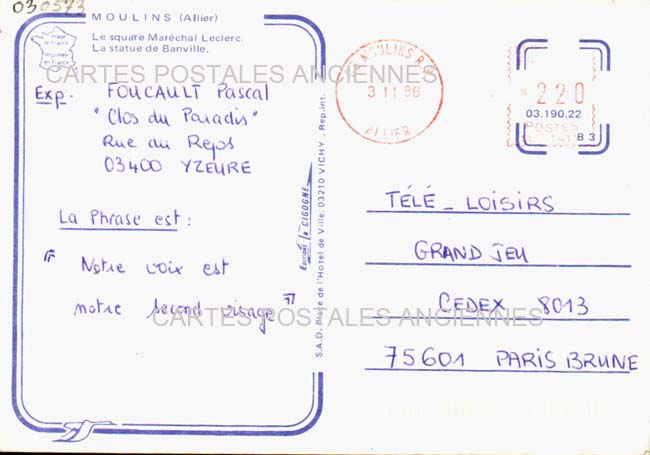 030573
MOULINS (Allier)
Le square Maréchal Leclerc.
La statue de Banville.
Image
de France
Imprimée
en France
CARTES POSTALES ANCIENNES
Exp. FOUCAULT Pascal
"Clos du Paradis"
Rue du Repos
03400 YZEURE
La Phrase est :
" Notre voix est
notre second visage "
CARTES POSTALES ANCIENNES
Editions la CIGOGNE
S.A.D. Place de l'Hôtel de Ville. 03210 VICHY. Rep. int.
MOULINS R.P.
3 11 86
ALLIER
220
03.190.22
POSTES
B 3
TÉLÉ - LOISIRS
GRAND JEU
CEDEX 8013
75601 PARIS BRUNE